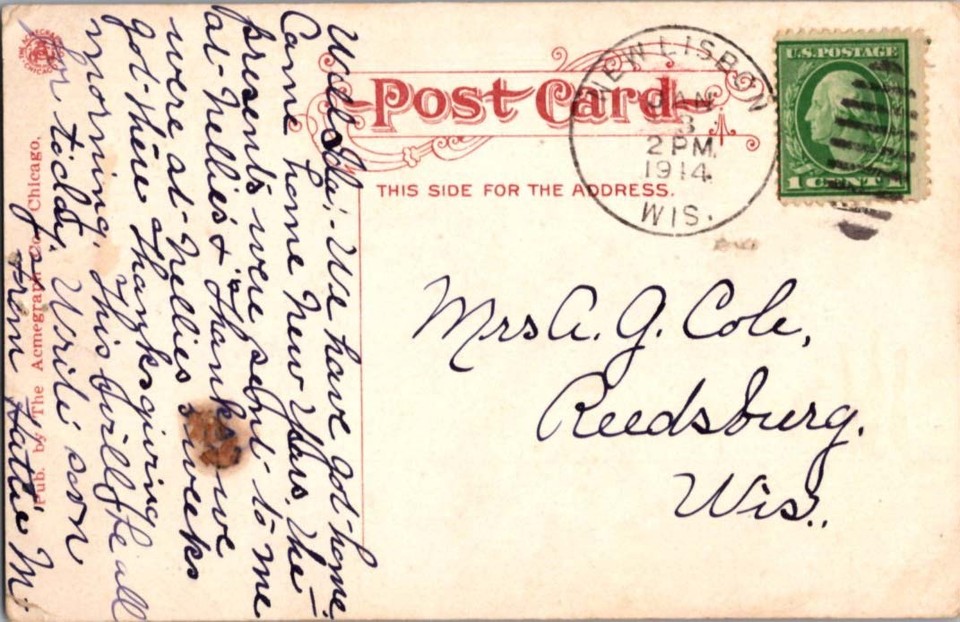 Post Card
THIS SIDE FOR THE ADDRESS.
NEW LISBON
JAN
3
2 PM.
1914.
WIS.
U.S. POSTAGE
1 CENT 1
Mrs A. G. Cole,
Reedsburg.
Wis.
We have got home
Came home New Years. The
presents were sent to me
at Nellies & "Thanks" we
were at Nellies 5 weeks
got there Thanksgiving
morning. This will be all
for today. Write soon
from Hattie M.
Pub. by The Acmegraph Co. Chicago.